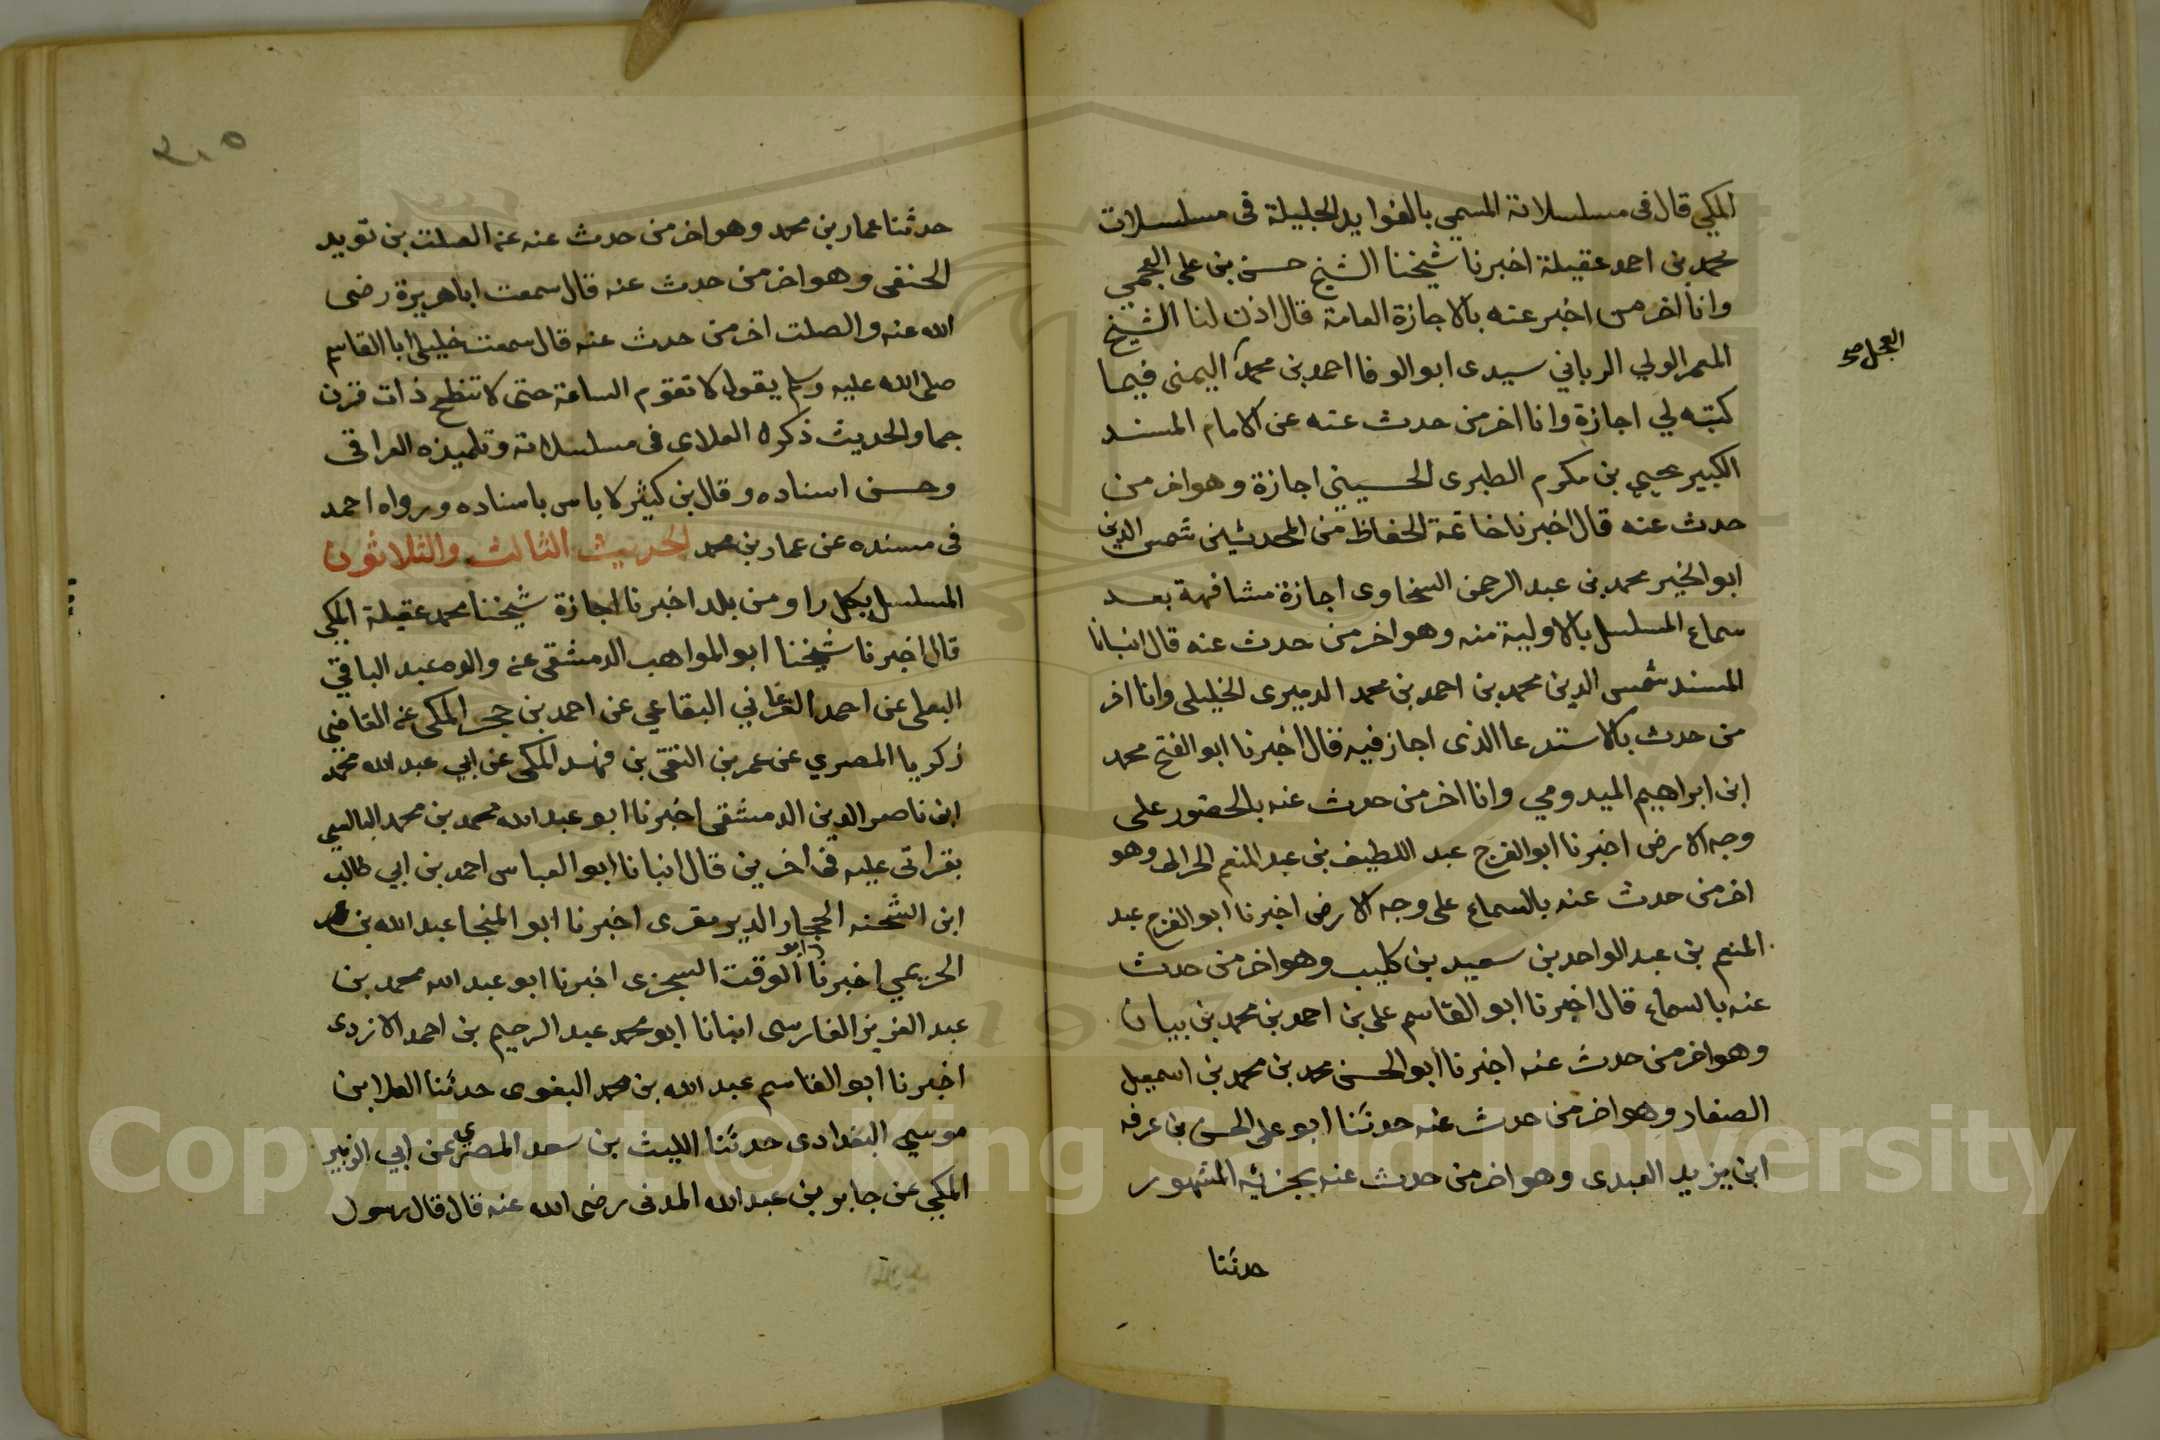 المكي قال في مسلسلاته المسمى بالفوايد الجليلة في مسلسلات
محمد بن احمد عقيلة اخبرنا شيخنا الشيخ حسن بن علي العجمي
وانا اخر من اخبر عنه بالاجازة العامة قال اذن لنا الشيخ
المعمر الولي الرباني سيدى ابو الوفا احمد بن محمد اليمنى فيما
العجل صح
كتبه لي اجازة وانا اخر من حدث عنه عن الامام المسند
الكبير يحيى بن مكرم الطبرى الحسيني اجازة وهو اخر من
حدث عنه قال اخبرنا خاتمة الحفاظ من المحدثين شمس الدين
ابو الخير محمد بن عبد الرحمن السخاوى اجازة مشافهة بعد
سماع المسلسل بالاولية منه وهو اخر من حدث عنه قال انبانا
المسند شمس الدين محمد بن احمد بن محمد الدميرى الخليلى وانا اخر
من حدث بالاستدعا الذى اجاز فيه قال اخبرنا ابو الفتح محمد
ابن ابراهيم الميدومي وانا اخر من حدث عنه بالحضور على
وجه الارض اخبرنا ابو الفرج عبد اللطيف بن عبد المنعم الحرانى وهو
اخر من حدث عنه بالسماع على وجه الارض اخبرنا ابو الفرج عبد
المنعم بن عبد الواحد بن سعيد بن كليب وهو اخر من حدث
عنه بالسماع قال اخبرنا ابو القاسم على بن احمد بن محمد بن بيان
وهو اخر من حدث عنه اخبرنا ابو الحسن محمد بن محمد بن اسمعيل
الصفار وهو اخر من حدث عنه حدثنا ابو على الحسن بن عرفه
ابن يزيد العبدى وهو اخر من حدث عنه بجزئه المشهور
حدثنا
حدثنا عمار بن محمد وهو اخر من حدث عنه عن الصلت بن قويد
الحنفى وهو اخر من حدث عنه قال سمعت ابا هريرة رضى
الله عنه والصلت اخر من حدث عنه قال سمعت خليلي ابا القاسم
صلى الله عليه وسلم يقول لا تقوم الساعة حتى لا تنطح ذات قرن
جما والحديث ذكره العلاى فى مسلسلاته وتلميذه العراقى
وحسن اسناده وقال بن كثير لا باس باسناده ورواه احمد
فى مسنده عن عمار بن محمد الحديث الثالث والثلاثون
المسلسل بكل راو من بلد اخبرنا اجازة شيخنا محمد عقيلة المكى
قال اخبرنا شيخنا ابو المواهب الدمشقى عن والده عبد الباقى
البعلى عن احمد العرعاني البقاعي عن احمد بن حجر المكى عن القاضي
زكريا المصري عن عمر بن التقى بن فهد المكى عن ابي عبد الله محمد
ابن ناصر الدين الدمشقى اخبرنا ابو عبد الله محمد بن محمد البالسي
بقراتى عليه فى اخرين قال انبانا ابو العباس احمد بن ابي طالب
ابن الشحنه الحجار الدير مقرى اخبرنا ابو المنجا عبد الله بن عمر
الحريمي اخبرنا ابو الوقت السجزى اخبرنا ابو عبد الله محمد بن
عبد العزيز الفارسى انبانا ابو محمد عبد الرحيم بن احمد الازدى
اخبرنا ابو القاسم عبد الله بن محمد البغوى حدثنا العلا بن
موسي البغدادى حدثنا الليث بن سعد المصري عن ابي الزبير
المكي عن جابر بن عبد الله المدنى رضى الله عنه قال قال رسول
Copyright © King Saud University